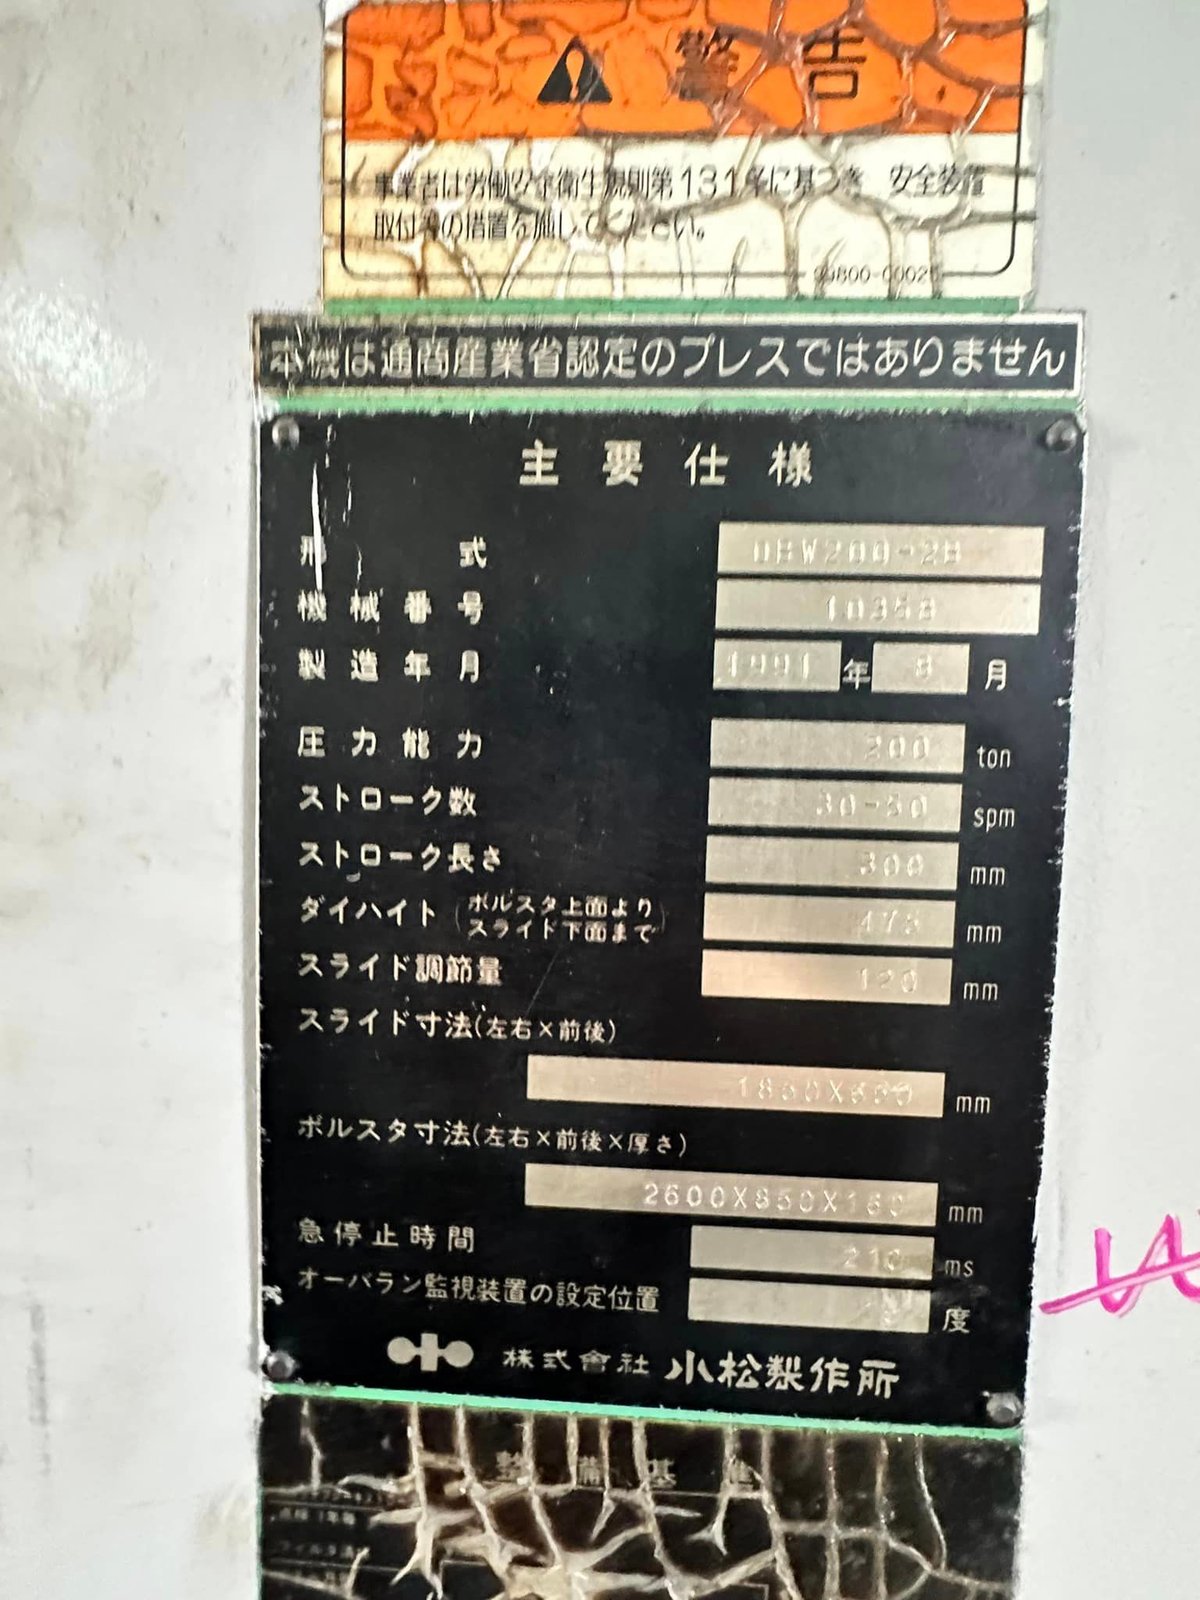 警告
事業者は労働安全衛生規則第131条に基づき 安全装置
取付等の措置を施してください。
本機は通商産業省認定のプレスではありません
主要仕様
形式 OBW200-2B
機械番号 10358
製造年月 1991年 8月
圧力能力 200 ton
ストローク数 spm
ストローク長さ 300 mm
ダイハイト(ボルスタ上面より
スライド下面まで) mm
スライド調節量 120 mm
スライド寸法(左右×前後)
mm
ボルスタ寸法(左右×前後×厚さ)
2600X850X160 mm
急停止時間 210 ms
オーバラン監視装置の設定位置 度
株式會社 小松製作所
整備基準